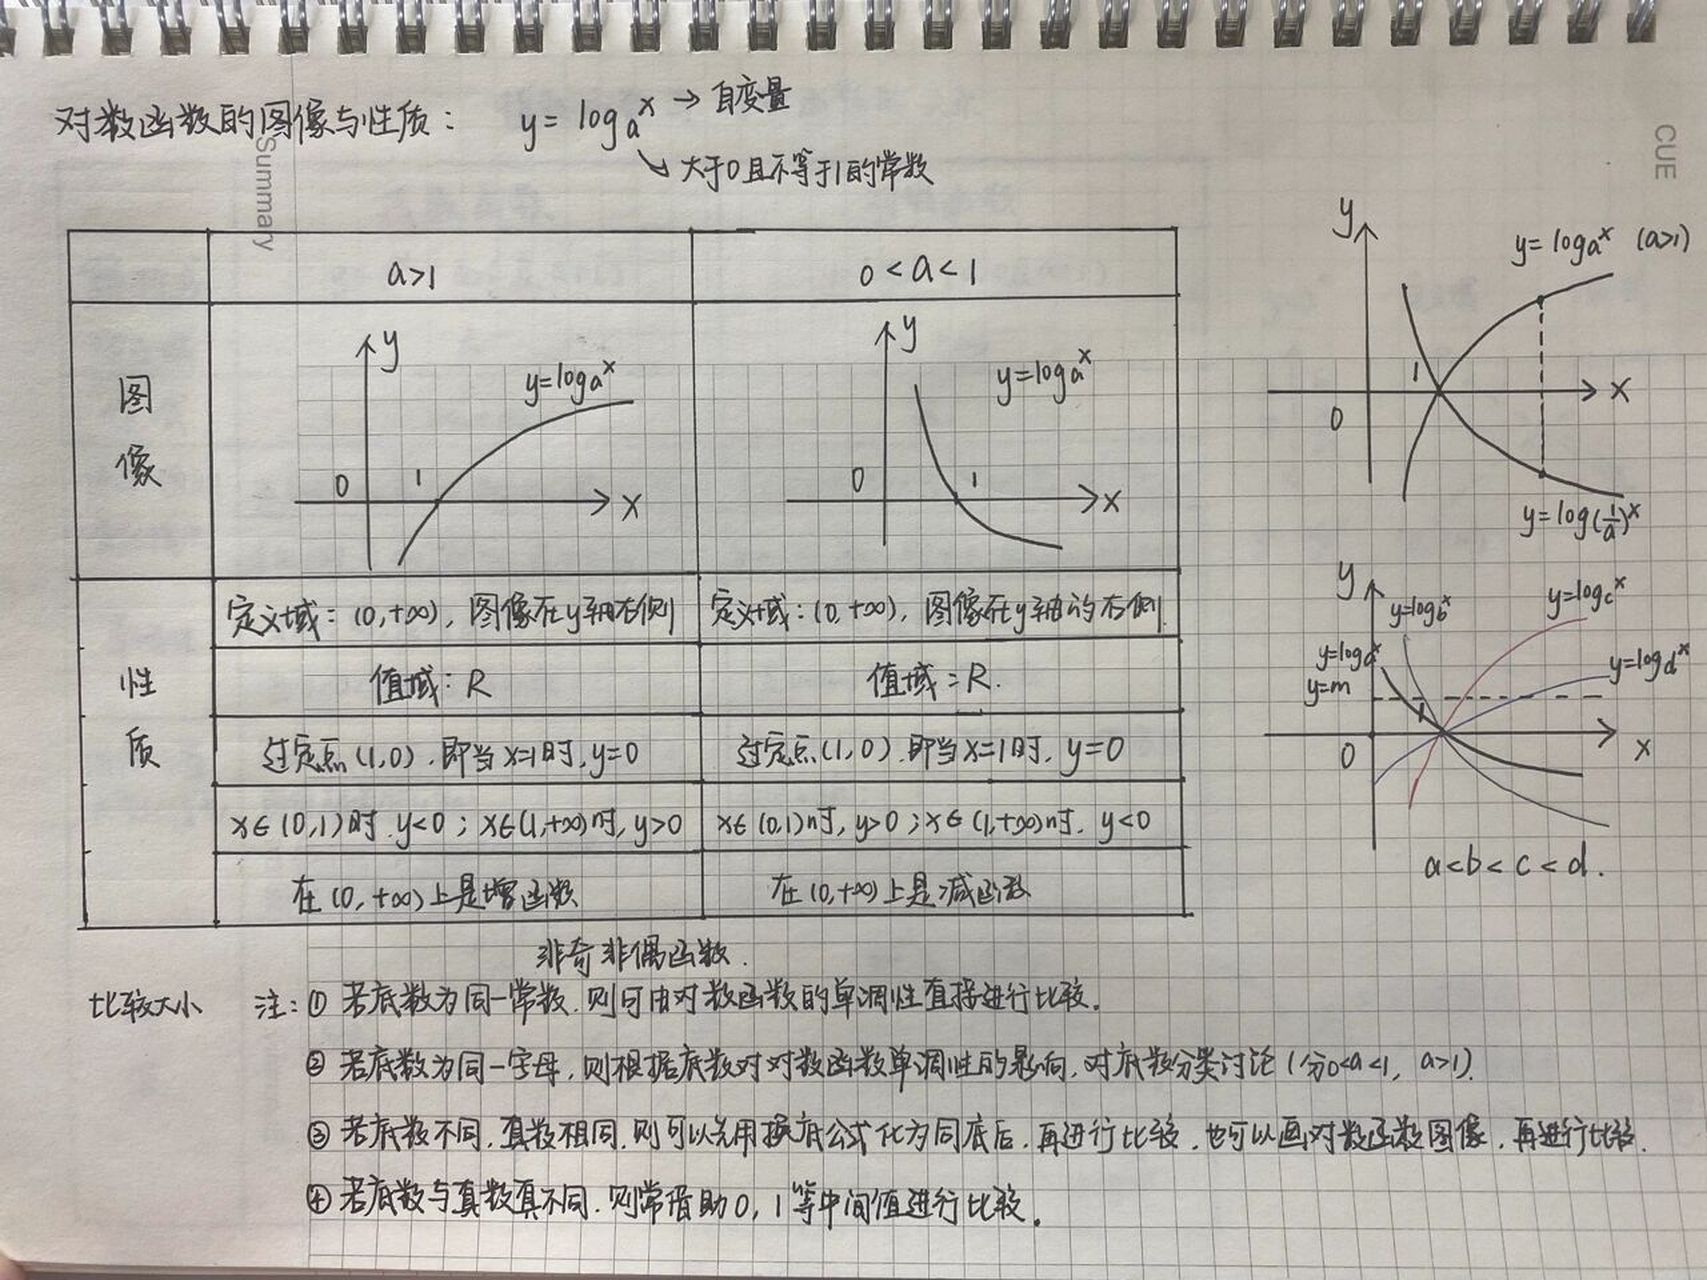 对数函数的图像与性质： y = logₐx → 自变量
↘ 大于0且不等于1的常数
Summary
CUE
a>1
0<a<1
图像
y
y=logₐx
0
1
x
y
y=logₐx
0
1
x
性质
定义域：(0,+∞)，图像在y轴右侧
定义域：(0,+∞)，图像在y轴的右侧
值域：R
值域：R.
过定点(1,0).即当x=1时,y=0
过定点(1,0).即当x=1时,y=0
x∈(0,1)时.y<0；x∈(1,+∞)时,y>0
x∈(0,1)时,y>0；x∈(1,+∞)时.y<0
在(0,+∞)上是增函数
在(0,+∞)上是减函数
非奇非偶函数.
y
y=logₐx (a>1)
1
x
0
y=log(1/a)x
y
y=log_b x
y=log_c x
y=logₐx
y=log_d x
y=m
1
0
x
a<b<c<d.
比较大小 注：① 若底数为同一常数.则可由对数函数的单调性直接进行比较.
② 若底数为同一字母,则根据底数对对数函数单调性的影响,对底数分类讨论(分0<a<1, a>1).
③ 若底数不同,真数相同.则可以先用换底公式化为同底后,再进行比较.也可以画对数函数图像,再进行比较.
④ 若底数与真数真不同.则常借助0,1等中间值进行比较.